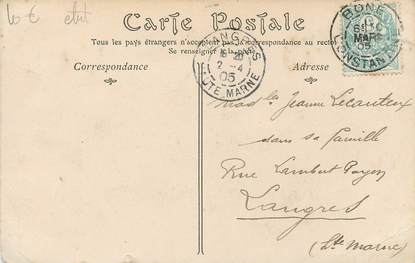 10 € état
Carte Postale
Tous les pays étrangers n'acceptent pas la correspondance au recto
Se renseigner à la poste
Correspondance
Adresse
LANGRES
2 -4
05
HTE MARNE
BONE
MARS
05
CONSTANTINE
Jeanne Lecauteux
dans sa famille
Rue Lambert Payen
Langres
(Hte Marne)